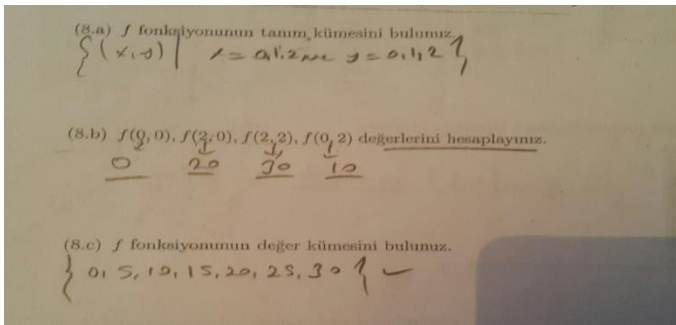 (8.a) f fonksiyonunun tanım kümesini bulunuz.
{(x,y) | x = 0,1,2 ve y = 0,1,2}
(8.b) f(0,0), f(2,0), f(2,2), f(0,2) değerlerini hesaplayınız.
0 20 30 10
(8.c) f fonksiyonunun değer kümesini bulunuz.
{0, 5, 10, 15, 20, 25, 30} ✓